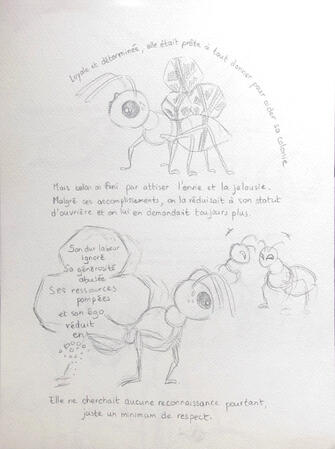 Loyale et déterminée, elle était prête à tout donner pour aider sa colonie
Mais celà a fini par attiser l'envie et la jalousie.
Malgré ses accomplissements, on la réduisait à son statut
d'ouvrière et on lui en demandait toujours plus.
Son dur labeur
ignoré
Sa générosité
abusée
Ses ressources
pompées
et son égo
réduit
en
Elle ne cherchait aucune reconnaissance pourtant,
juste un minimum de respect.